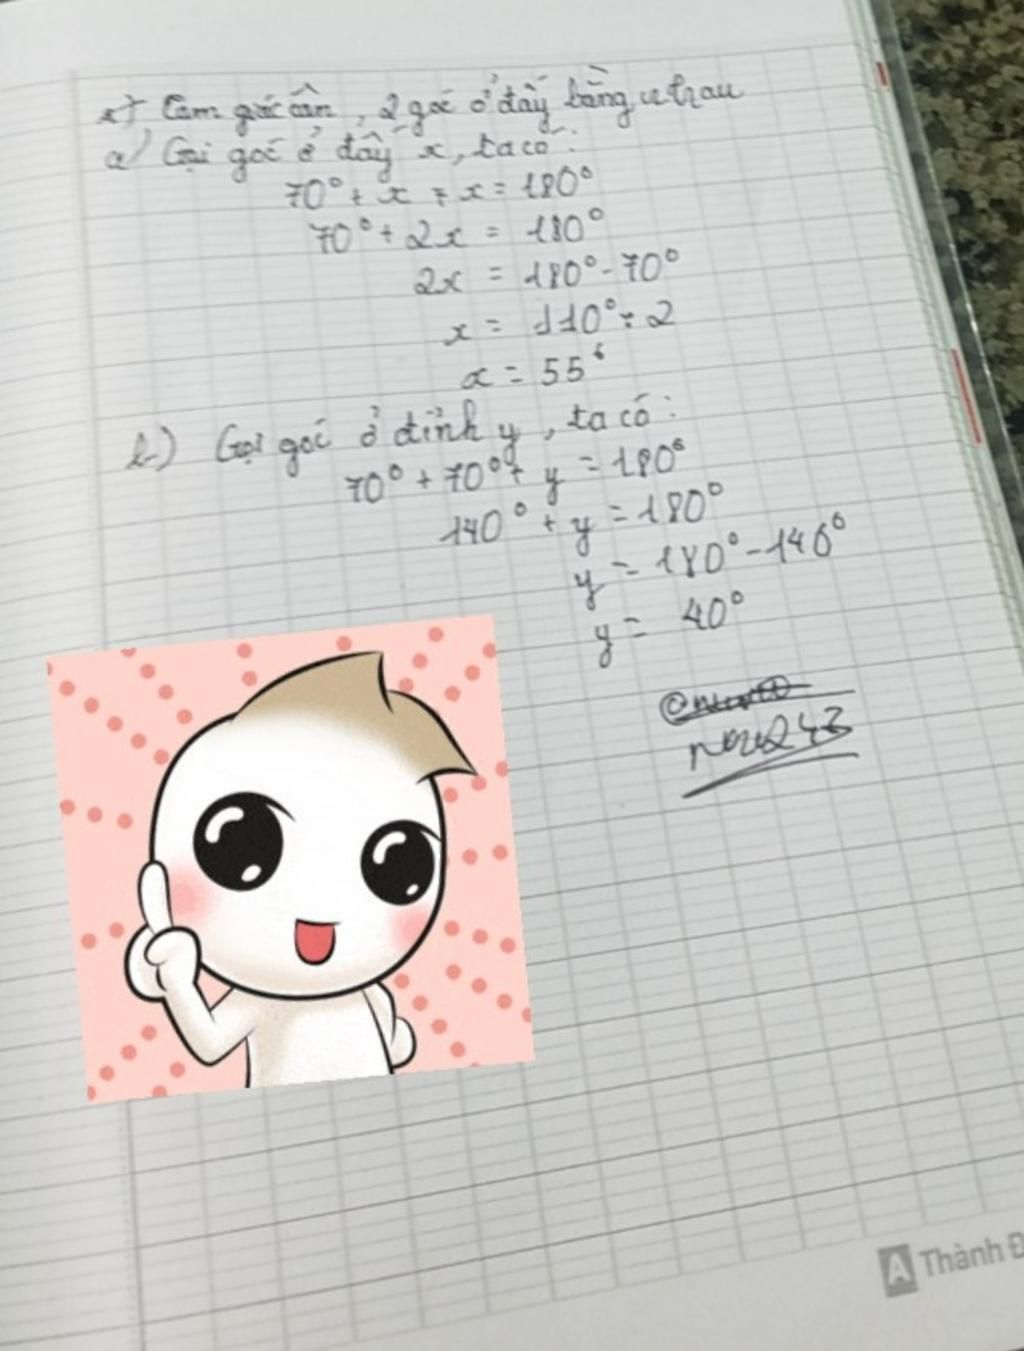 Tam giác cân, 2 góc ở đáy bằng nhau
a) Gọi góc ở đáy x, ta có:
70° + x + x = 180°
70° + 2x = 180°
2x = 180° - 70°
x = 110° : 2
x = 55°
b) Gọi góc ở đỉnh y, ta có:
70° + 70° + y = 180°
140° + y = 180°
y = 180° - 140°
y = 40°
A Thành Đ